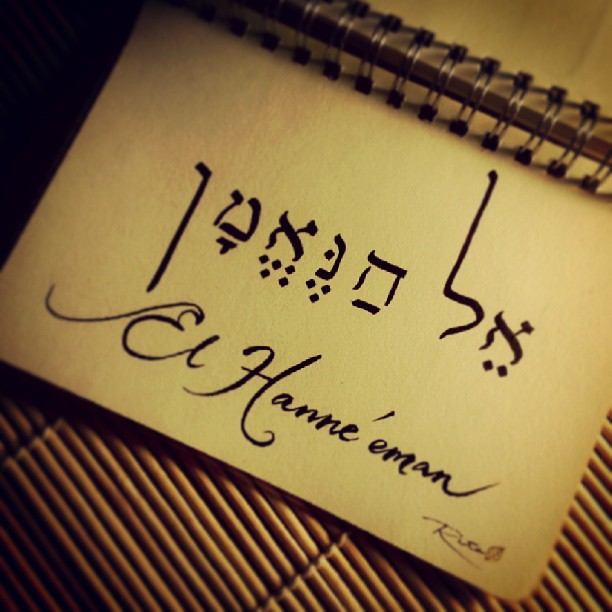 אֵל הַנֶּאֱמָן
El Hanne'eman